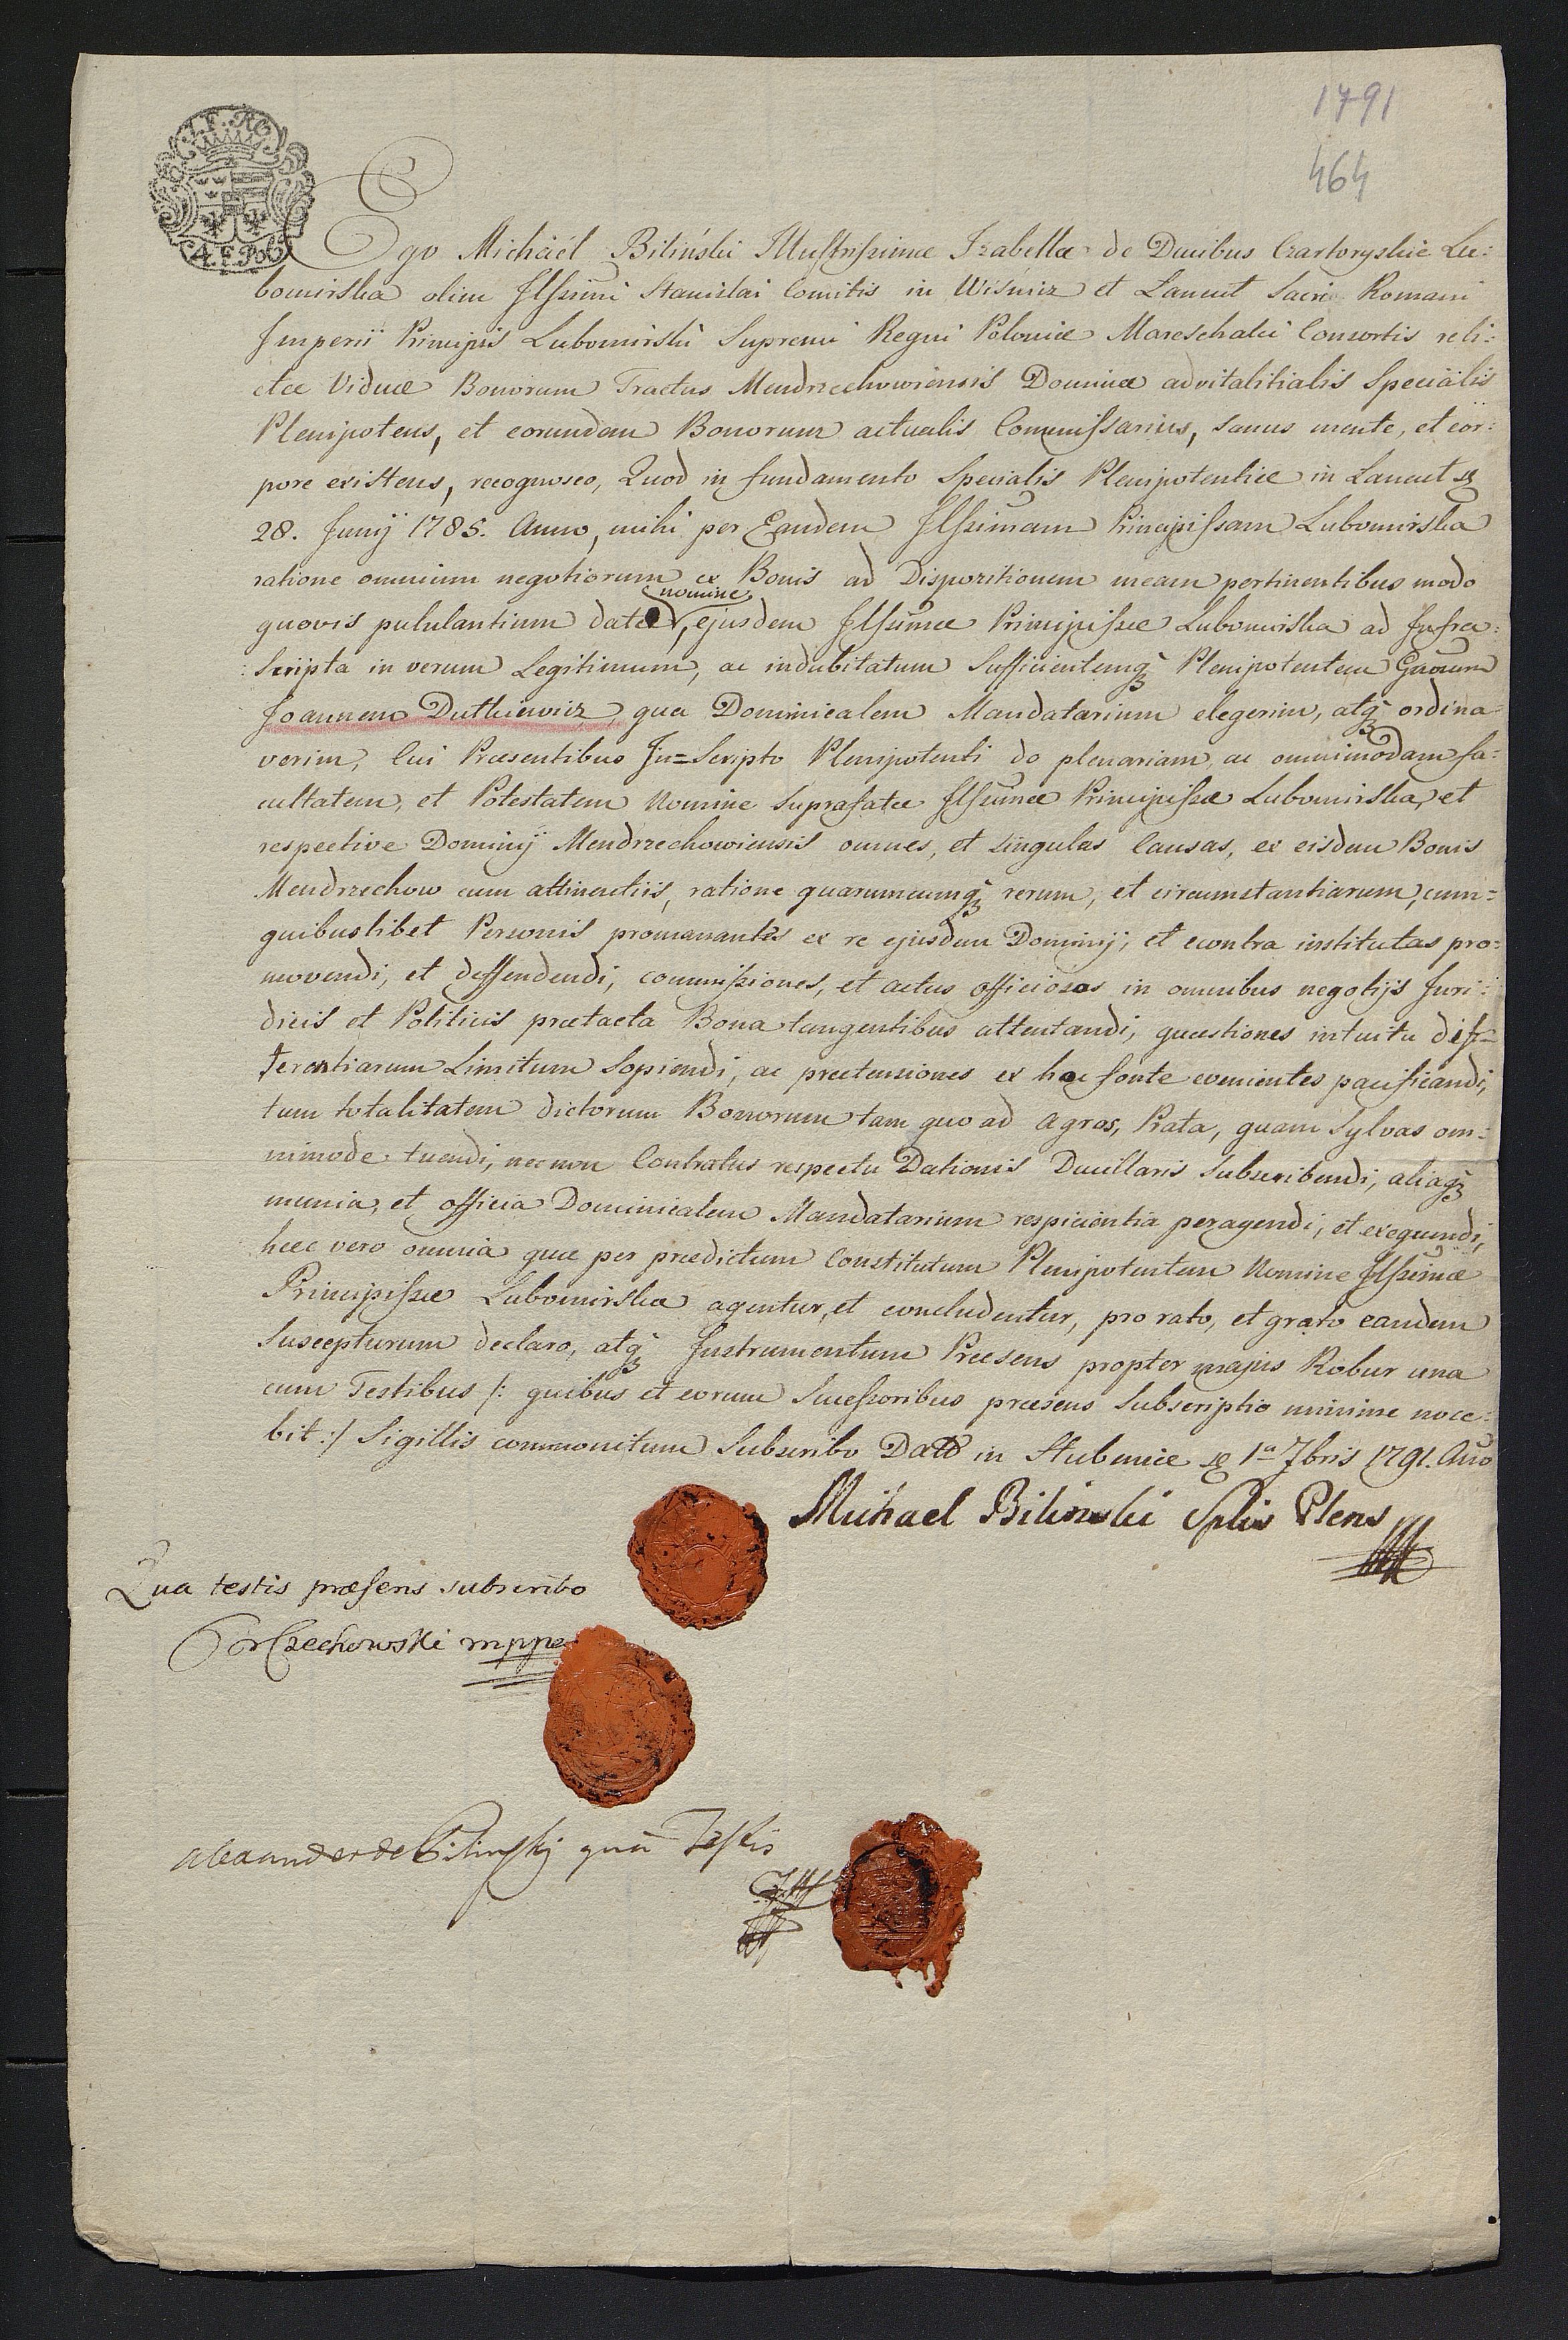 1791
464
Ego Michäél Biliński Illustrissimæ Izabellæ de Ducibus Czartoryskie Lu:
bomirska olim Illssimi Stanislai Comitis in Wiśnicz et Lancut Sacri Romani
Imperii Principis Lubomirski Supremi Regni Poloniæ Mareschalci Consortis reli:
ctæ Viduæ Bonorum Tractus Mendrzechowiensis Dominæ advitalitialis Specialis
Plenipotens, et eorundem Bonorum actualis Commissarius, sanus mente, et cor:
pore existens, recognosco, Quod in fundamento Specialis Plenipotentiæ in Lancut
28. Junij 1785. Anno, mihi per Eandem Illssimam Principissam Lubomirska
ratione omnium negotiorum ex Bonis ad Dispozitionem meam pertinentibus modo
nomine
quovis pululantium datæ, ejusdem Illssimæ Principissæ Lubomirska ad Infra:
:scripta in verum Legitimum, ac indubitatum Sufficientemq Plenipotentem Gnosum
Joannem Dutkiewicz, qua Dominicalem Mandatarium elegerim, atq ordina
verim, Cui Præsentibus In=Scripto Plenipotenti do plenariam, ac omnimodam fa:
cultatem, et Potestatem Nomine Suprafatæ Illssimæ Principissæ Lubomirska, et
respective Dominij Mendrzechowiensis omnes, et singulas Causas, ex eisdem Bonis
Mendrzechow cum attinentiis, ratione quarumcumq rerum, et circumstantiarum, cum=
quibuslibet Personis promanantes ex re ejusdem Dominij, et econtra institutas pro=
movendi, et deffendendi, commissiones, et actus officiosos in omnibus negotijs Juri:
dicis et Politicis prætacta Bona tangentibus attentandi, quæstiones intuitu dif=
ferentiarum Limitum Sopiendi, ac prætensiones ex hoc fonte evenientes pacificandi,
tum totalitatem dictorum Bonorum tam quo ad agros, Prata, quam Sylvas om:
nimode tuendi, nec non Contratus respectu Dationis Ducillaris Subscribendi, aliaq
munia, et officia Dominicalem Mandatarium respicientia peragendi, et exequendi,
hæc vero omnia quæ per prædictum Constitutum Plenipotentem Nomine Illssimæ
Principissæ Lubomirska agentur, et concludentur, pro rato, et grato eandem
Suscepturum declaro, atq Instrumentum Præsens propter majus Robur una
cum Testibus /: quibus et eorum Successoribus præsens Subscriptio minime noce:
bit :/ Sigillis communitum Subscribo Datt in Stubnice 1a 7bris 1791. Ano
Michael Bilinski Splis Plens
Qua testis præsens subscribo
Czechowski mppa
Alexander de Bilinskj qua Testis